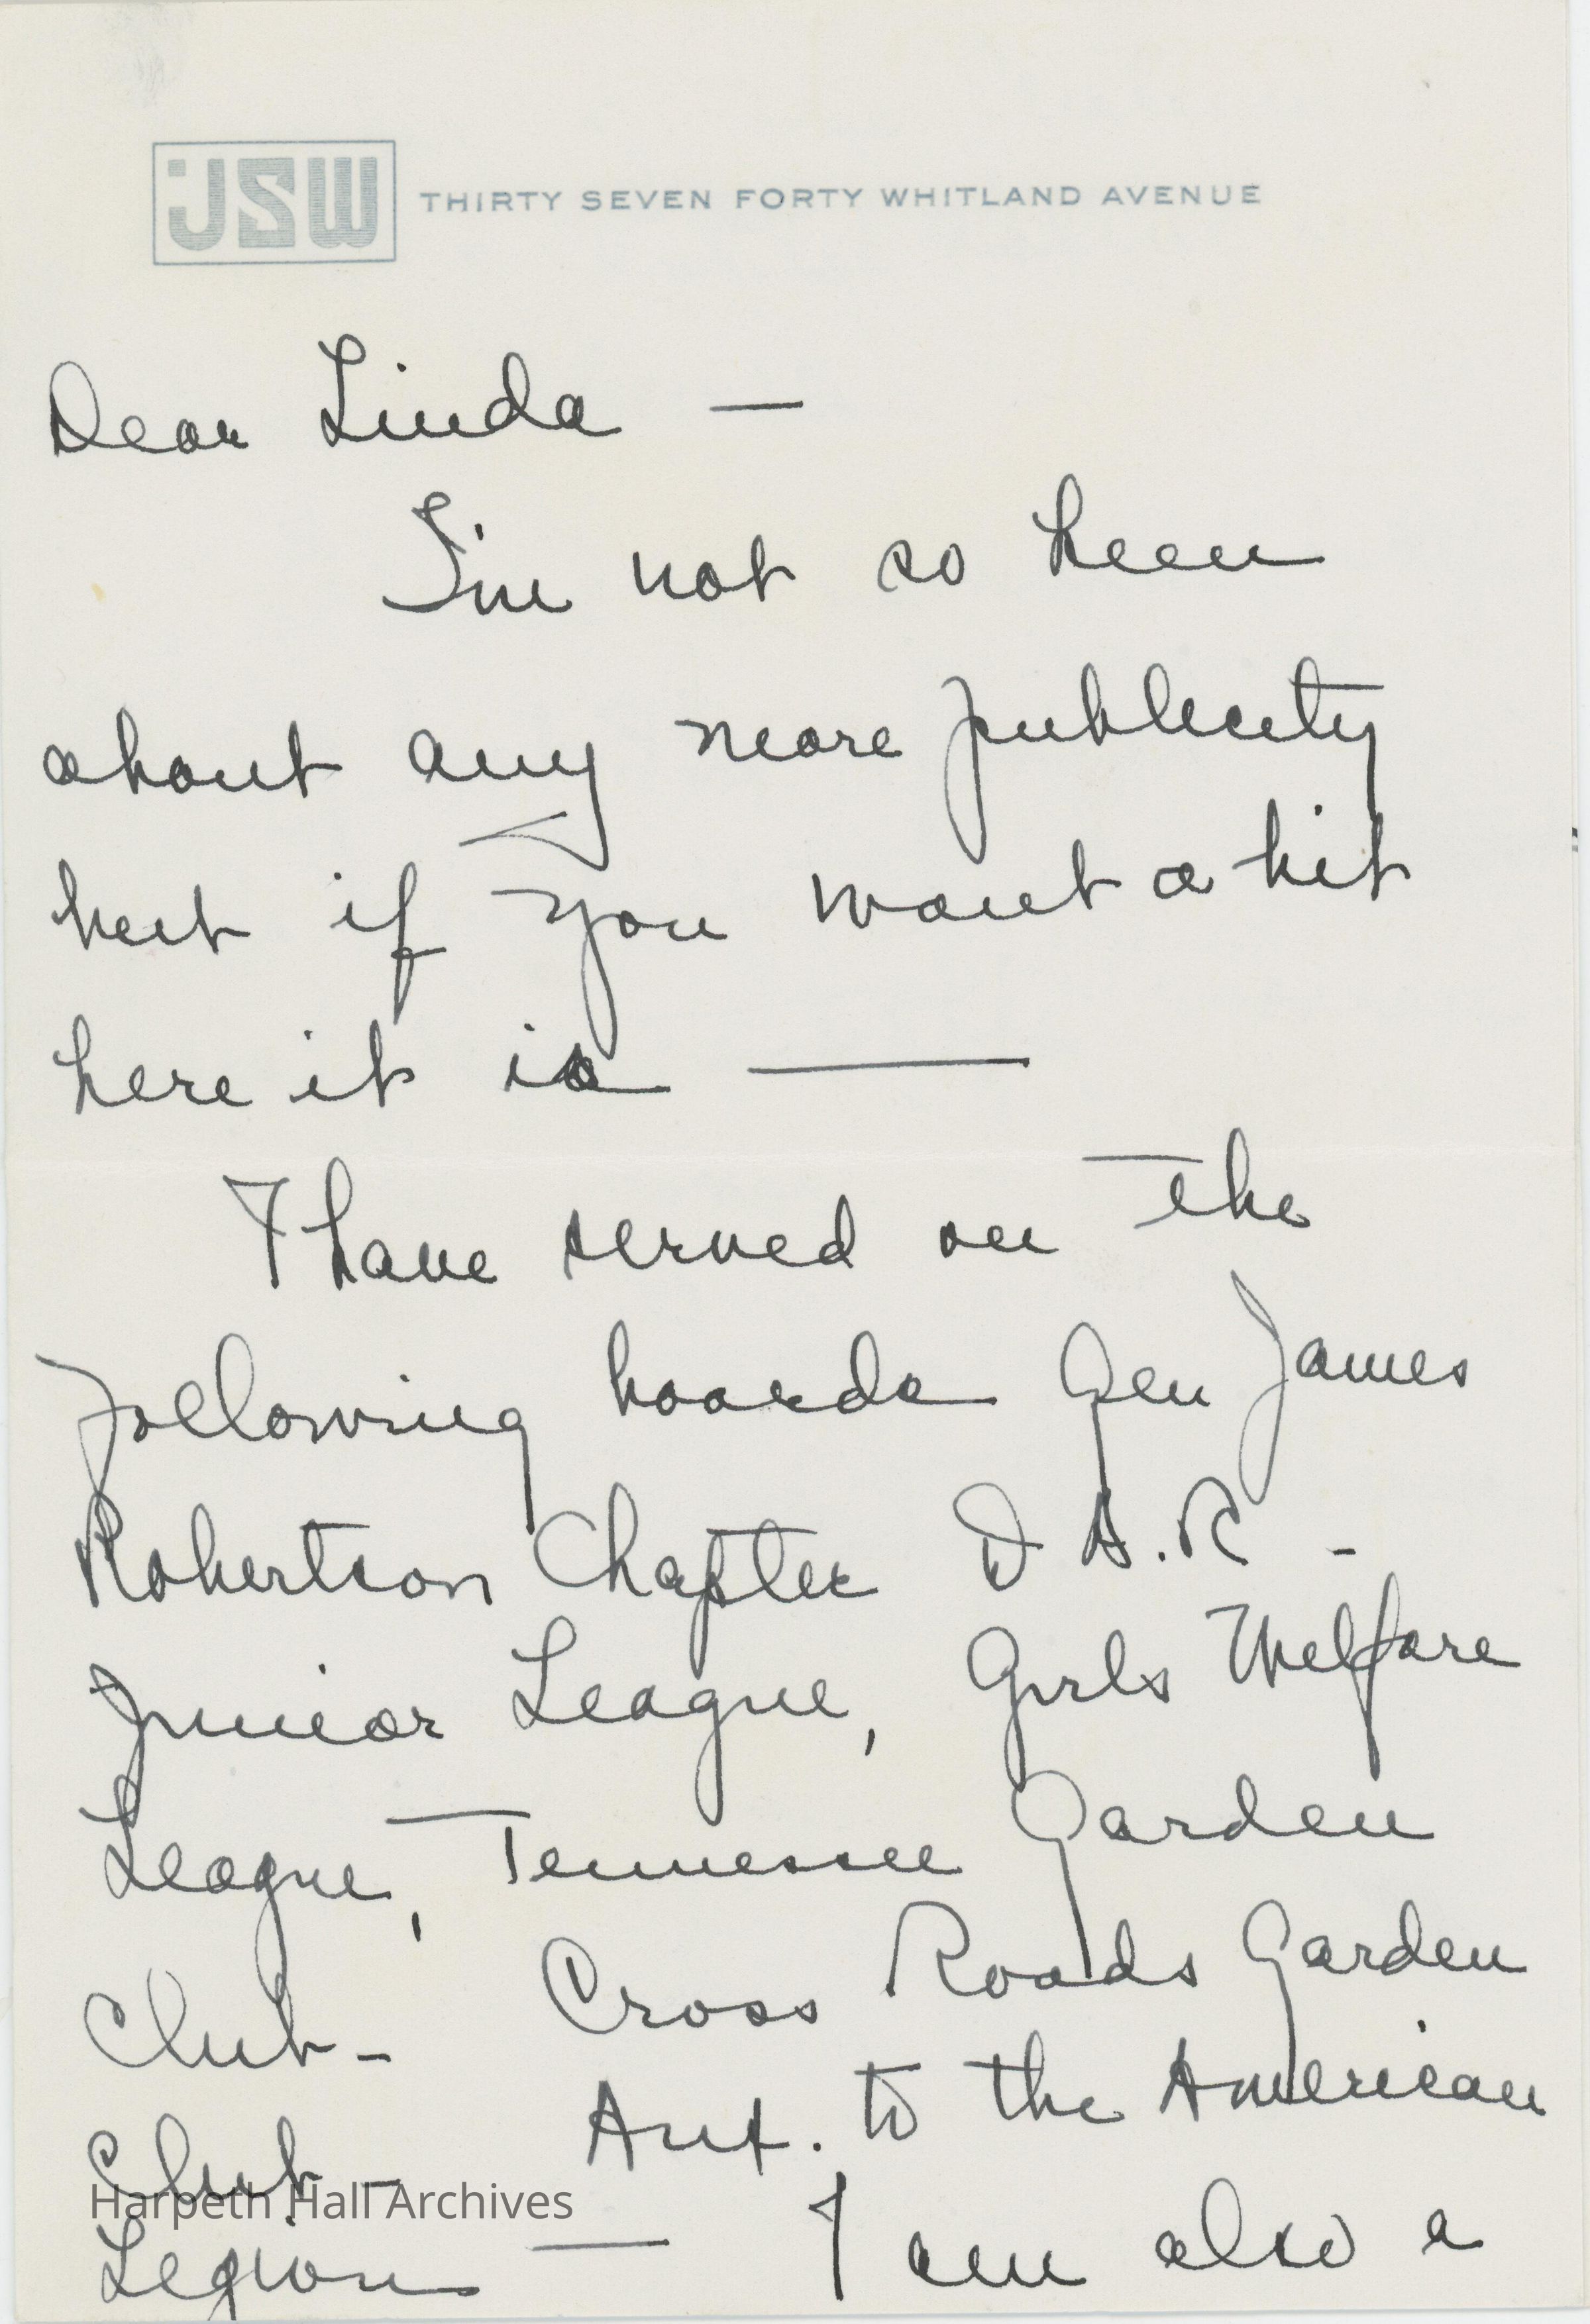 JSW THIRTY SEVEN FORTY WHITLAND AVENUE
Dear Linda —
I'm not so keen
about any more publicity
but if you want a bit
here it is —
I have served on the
following boards Gen James
Robertson Chapter D A.R -
Junior League, Girls Welfare
League, Tennessee Garden
Club - Cross Roads Garden
Club - Aux. to the American
Legion — I am also a
Harpeth Hall Archives